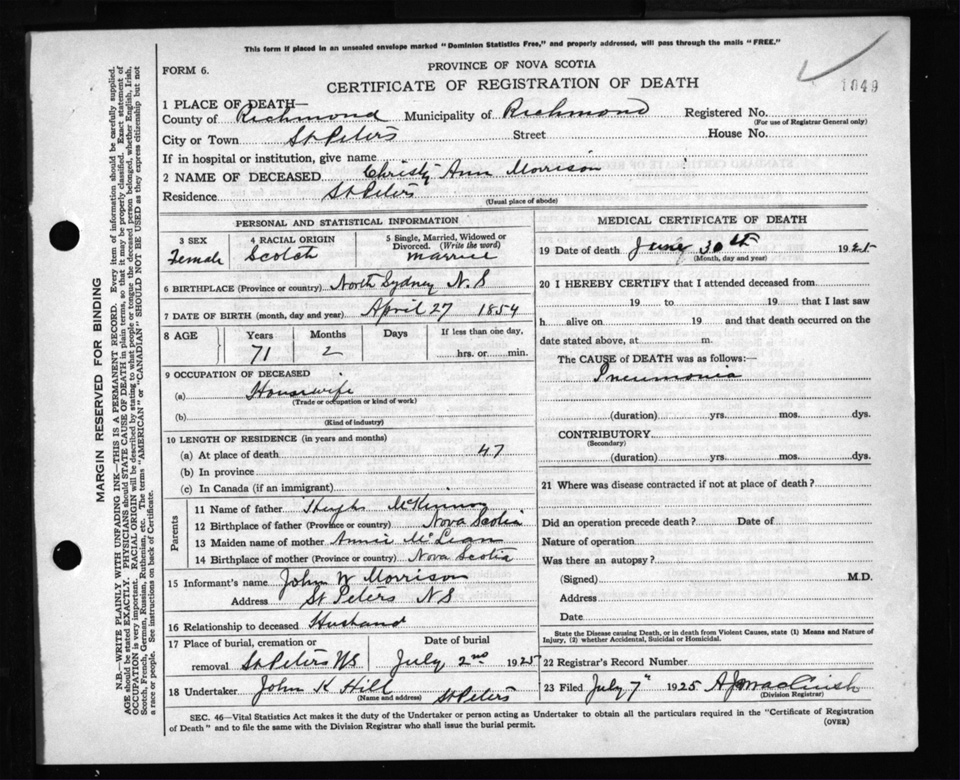 This form if placed in an unsealed envelope marked "Dominion Statistics Free," and properly addressed, will pass through the mails "FREE."
FORM 6.
PROVINCE OF NOVA SCOTIA
CERTIFICATE OF REGISTRATION OF DEATH
1949
1 PLACE OF DEATH—
County of Richmond Municipality of Richmond Registered No.
(For use of Registrar General only)
City or Town St Peters Street House No.
If in hospital or institution, give name
2 NAME OF DECEASED Christy Ann Morrison
Residence St Peters
(Usual place of abode)
PERSONAL AND STATISTICAL INFORMATION
3 SEX 4 RACIAL ORIGIN 5 Single, Married, Widowed or Divorced. (Write the word)
Female Scotch married
6 BIRTHPLACE (Province or country) North Sydney N.S
7 DATE OF BIRTH (month, day and year) April 27 1854
8 AGE Years Months Days If less than one day,
71 2 hrs. or min.
9 OCCUPATION OF DECEASED
(a) Housewife
(Trade or occupation or kind of work)
(b)
(Kind of industry)
10 LENGTH OF RESIDENCE (in years and months)
(a) At place of death 47
(b) In province
(c) In Canada (if an immigrant)
Parents
11 Name of father Hugh McKinnon
12 Birthplace of father (Province or country) Nova Scotia
13 Maiden name of mother Annie McLean
14 Birthplace of mother (Province or country) Nova Scotia
15 Informant's name John W Morrison
Address St Peters NS
16 Relationship to deceased Husband
17 Place of burial, cremation or removal St Peters NS Date of burial July 2nd 1925
18 Undertaker John K Hill St Peters
(Name and address)
MEDICAL CERTIFICATE OF DEATH
19 Date of death June 30th 1925
(Month, day and year)
20 I HEREBY CERTIFY that I attended deceased from
19 to 19 that I last saw
h alive on 19 and that death occurred on the
date stated above, at m.
The CAUSE of DEATH was as follows:—
Pneumonia
(duration) yrs. mos. dys.
CONTRIBUTORY
(Secondary)
(duration) yrs. mos. dys.
21 Where was disease contracted if not at place of death?
Did an operation precede death? Date of
Nature of operation
Was there an autopsy?
(Signed) M.D.
Address
Date
State the Disease causing Death, or in death from Violent Causes, state (1) Means and Nature of
Injury, (2) whether Accidental, Suicidal or Homicidal.
22 Registrar's Record Number
23 Filed July 7" 1925 A J MacCuish
(Division Registrar)
SEC. 46—Vital Statistics Act makes it the duty of the Undertaker or person acting as Undertaker to obtain all the particulars required in the "Certificate of Registration
of Death" and to file the same with the Division Registrar who shall issue the burial permit. (OVER)
MARGIN RESERVED FOR BINDING
N.B.—WRITE PLAINLY WITH UNFADING INK—THIS IS A PERMANENT RECORD. Every item of information should be carefully supplied.
AGE should be stated EXACTLY. PHYSICIANS should STATE CAUSE OF DEATH in plain terms, so that it may be properly classified. Exact statement of
OCCUPATION is very important. RACIAL ORIGIN will be described by stating to what people or tongue the deceased person belonged, whether English, Irish,
Scotch, French, German, Russian, Ruthenian, etc. The terms "AMERICAN" or "CANADIAN" SHOULD NOT BE USED as they express citizenship but not
a race or people. See instructions on back of Certificate.